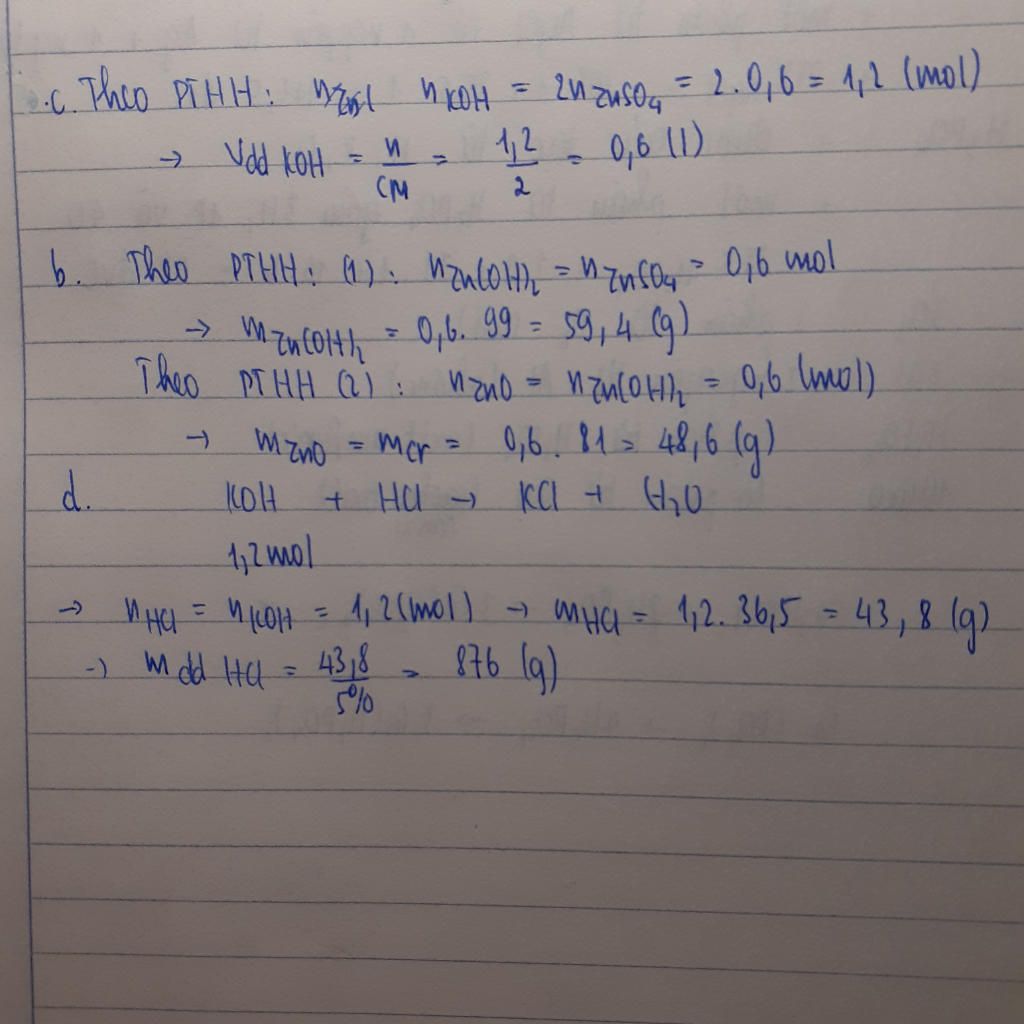 c. Theo PTHH: nKOH = 2nZnSO₄ = 2.0,6 = 1,2 (mol)
→ Vdd KOH = n/CM = 1,2/2 = 0,6 (l)
b. Theo PTHH: (1): nZn(OH)₂ = nZnSO₄ = 0,6 mol
→ mZn(OH)₂ = 0,6. 99 = 59,4 (g)
Theo PTHH (2): nZnO = nZn(OH)₂ = 0,6 (mol)
→ mZnO = mcr = 0,6. 81 = 48,6 (g)
d. KOH + HCl → KCl + H₂O
1,2mol
→ nHCl = nKOH = 1,2(mol) → mHCl = 1,2. 36,5 = 43,8 (g)
→ mdd HCl = 43,8/5% = 876 (g)